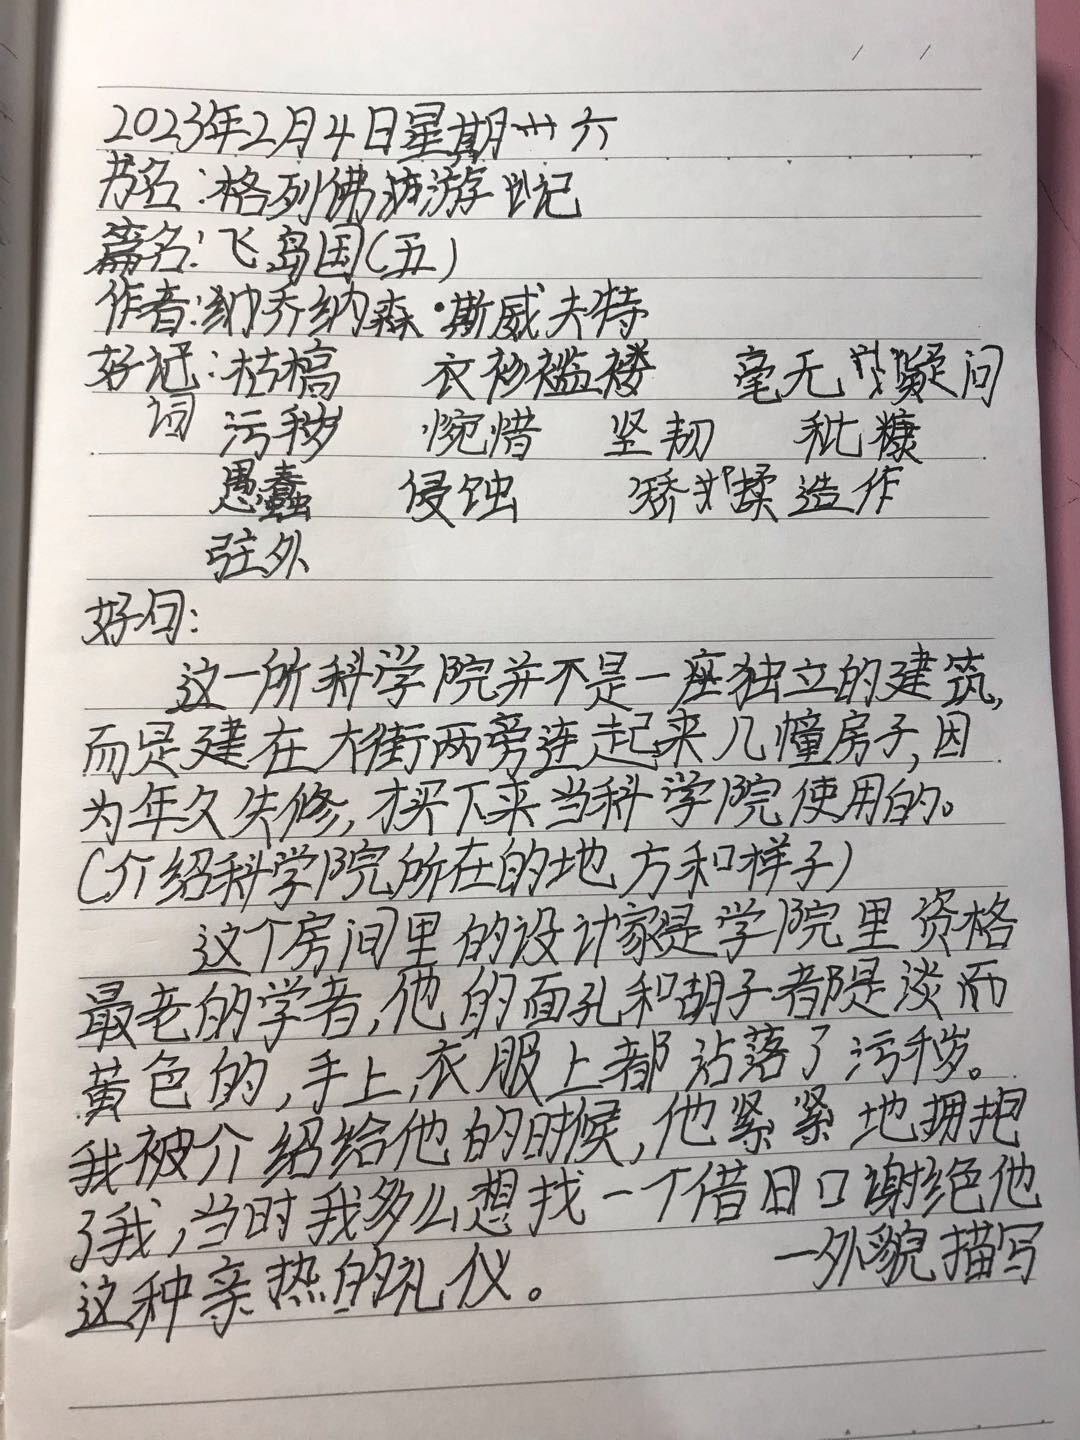 2023年2月4日星期六
书名:格列佛游记
篇名:飞岛国(五)
作者:乔纳森·斯威夫特
好词:枯槁 衣衫褴褛 毫无疑问
污秽 惋惜 坚韧 秕糠
愚蠢 侵蚀 矫揉造作
驻外
好句:
这一所科学院并不是一座独立的建筑,
而是建在大街两旁连起来几幢房子,因
为年久失修,才买下来当科学院使用的。
(介绍科学院所在的地方和样子)
这个房间里的设计家是学院里资格
最老的学者,他的面孔和胡子都是淡而
黄色的,手上,衣服上都沾落了污秽。
我被介绍给他的时候,他紧紧地拥抱
了我,当时我多么想找一个借口谢绝他
这种亲热的礼仪。 —外貌描写